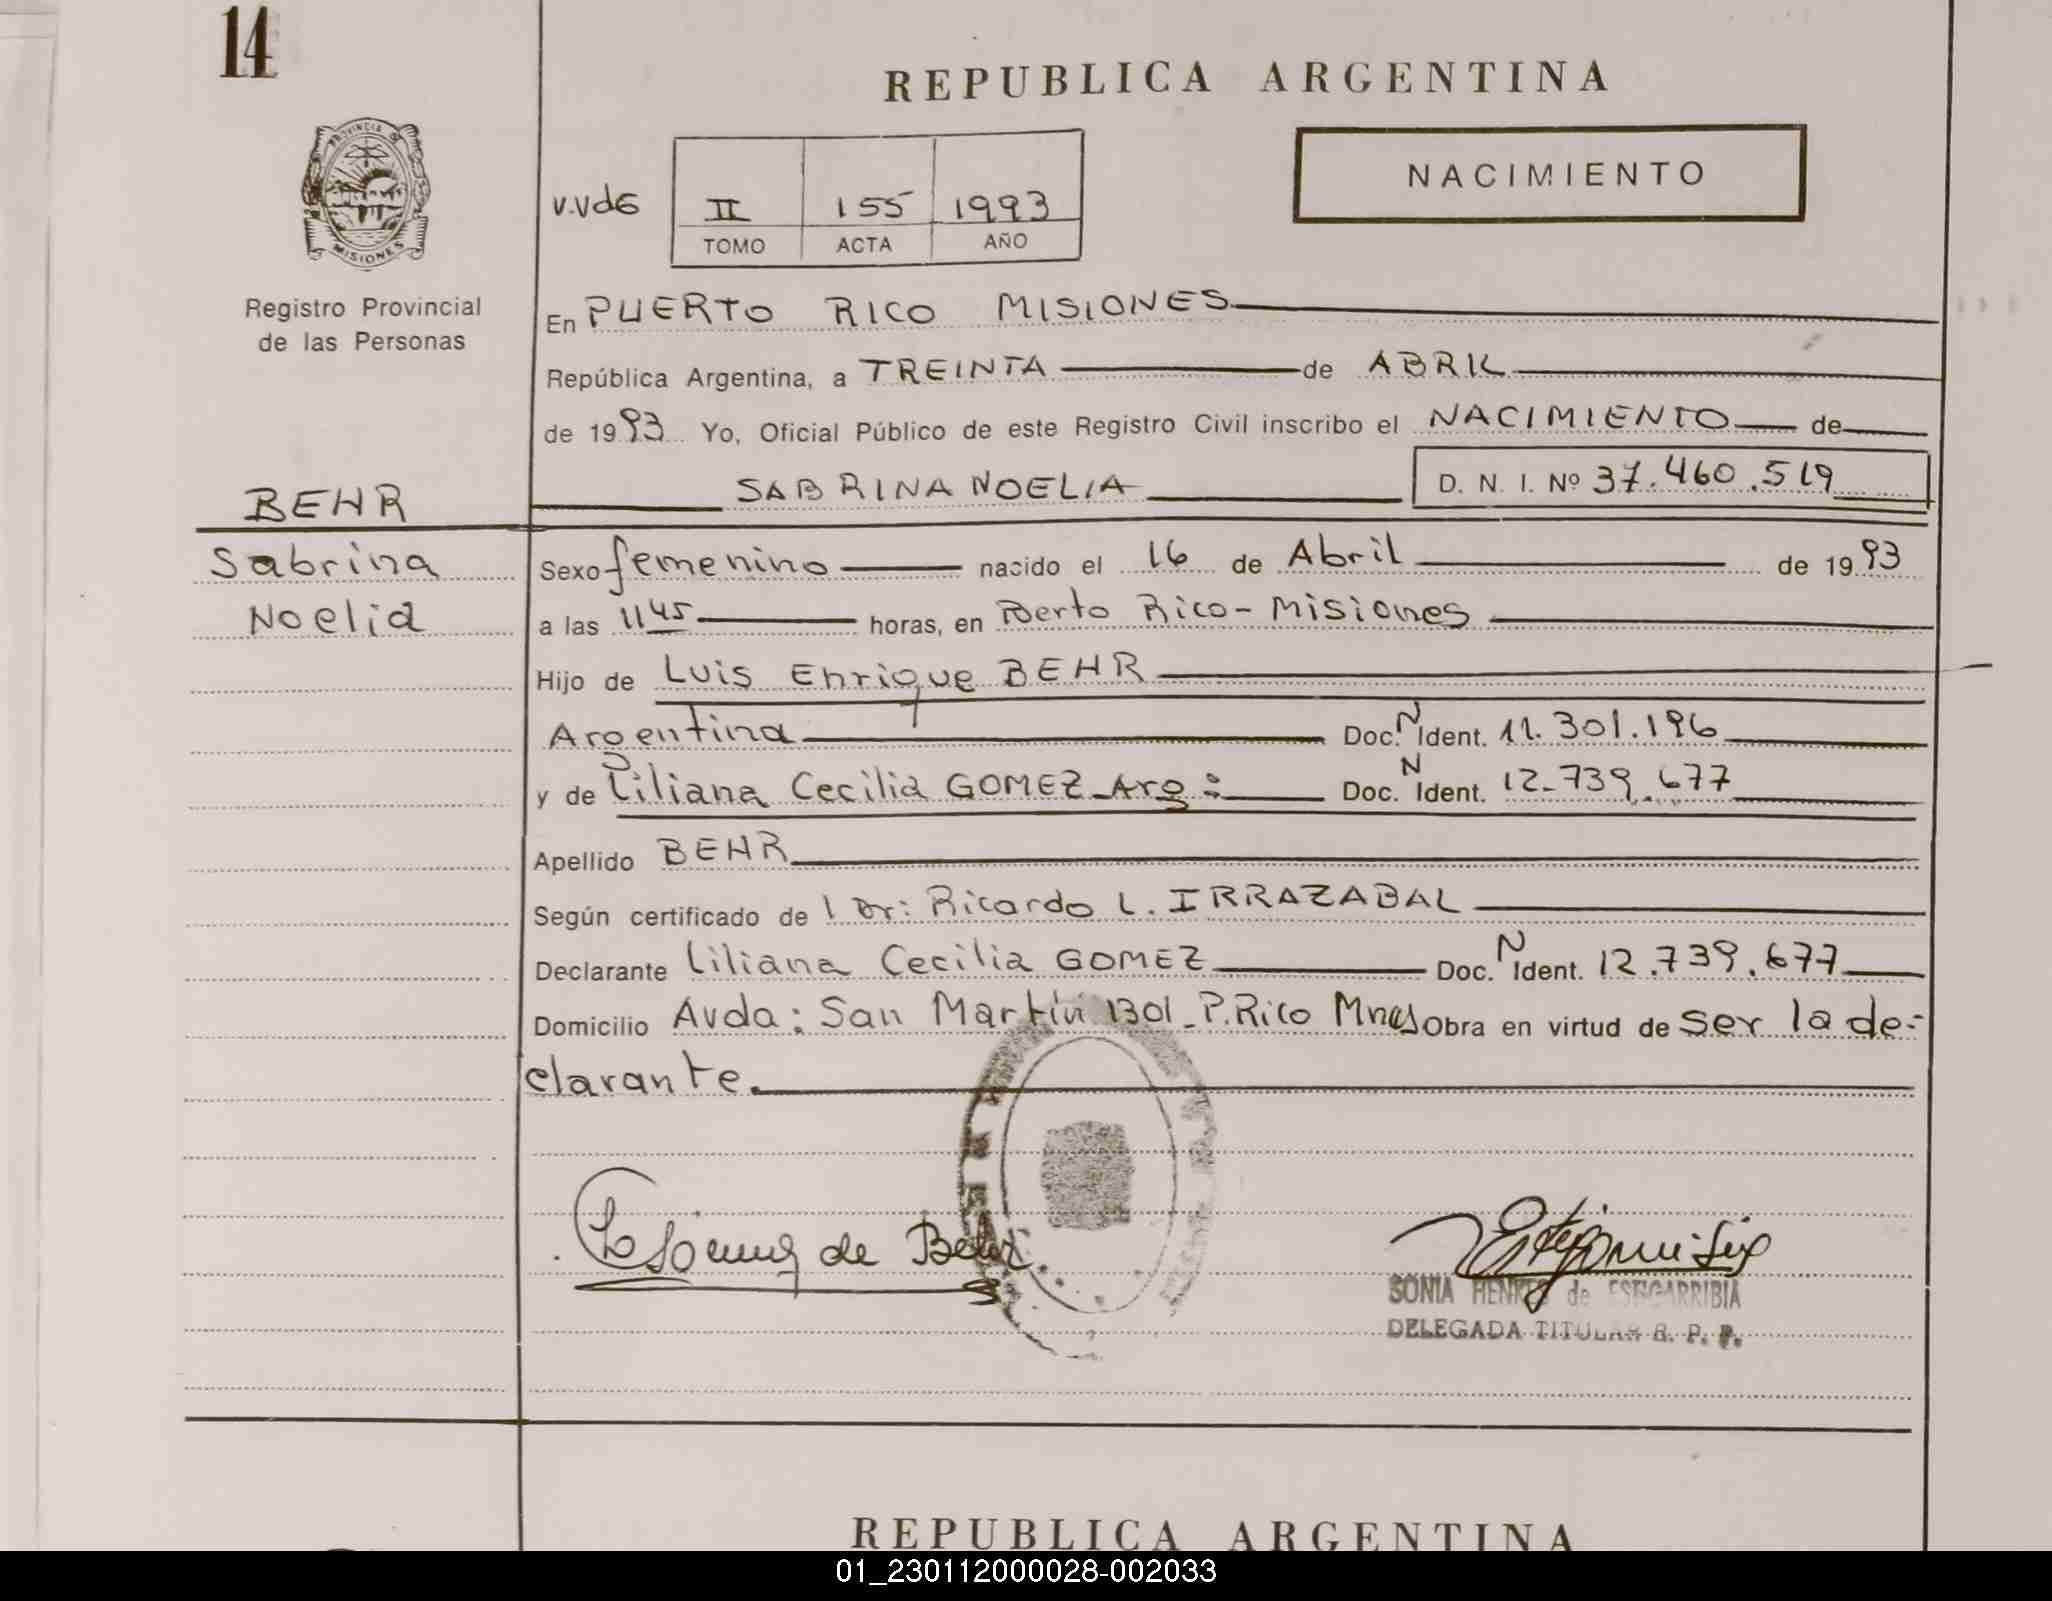 14
REPUBLICA ARGENTINA
PROVINCIA DE
MISIONES
NACIMIENTO
II 155 1993
TOMO ACTA AÑO
Registro Provincial
de las Personas
En PUERTO RICO MISIONES
República Argentina, a TREINTA de ABRIL
de 1993 Yo, Oficial Público de este Registro Civil inscribo el NACIMIENTO de
SABRINA NOELIA D. N. I. Nº 37.460.519
BEHR
Sabrina
Noelia
Sexo femenino nacido el 16 de Abril de 1993
a las 11 45 horas, en Puerto Rico - Misiones
Hijo de Luis Enrique BEHR
Argentina Doc. N Ident. 11.301.196
y de Liliana Cecilia GOMEZ - Arg: Doc. N Ident. 12.739.677
Apellido BEHR
Según certificado de l Dr: Ricardo L. IRRAZABAL
Declarante Liliana Cecilia GOMEZ Doc. N Ident. 12.739.677
Domicilio Avda: San Martín 1301 - P. Rico Mnes Obra en virtud de ser la de-
clarante.
de Behr
SONIA HENKES de ESTIGARRIBIA
DELEGADA TITULAR R. P. P.
REPUBLICA ARGENTINA
01_230112000028-002033